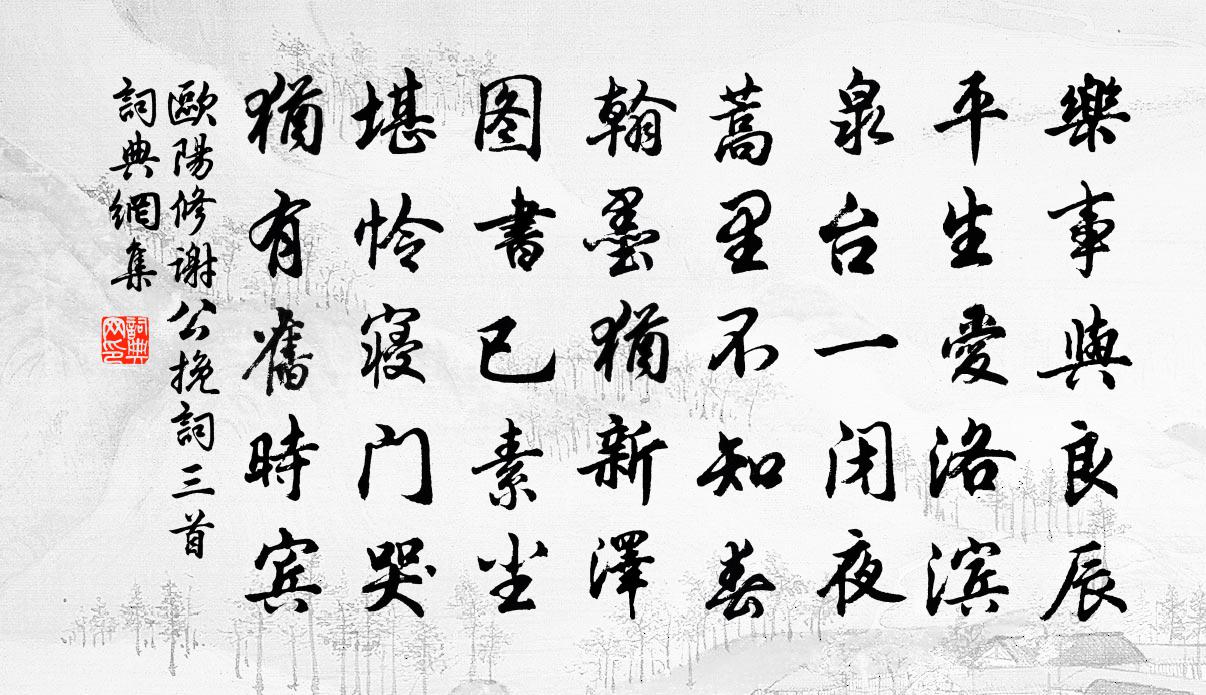 樂事與良辰
平生愛洛滨
泉台一闭夜
蒿里不知春
翰墨猶新澤
图書已素尘
堪怜寝门哭
猶有舊時宾
歐陽修谢公挽詞三首
詞典網集
詞典
网印